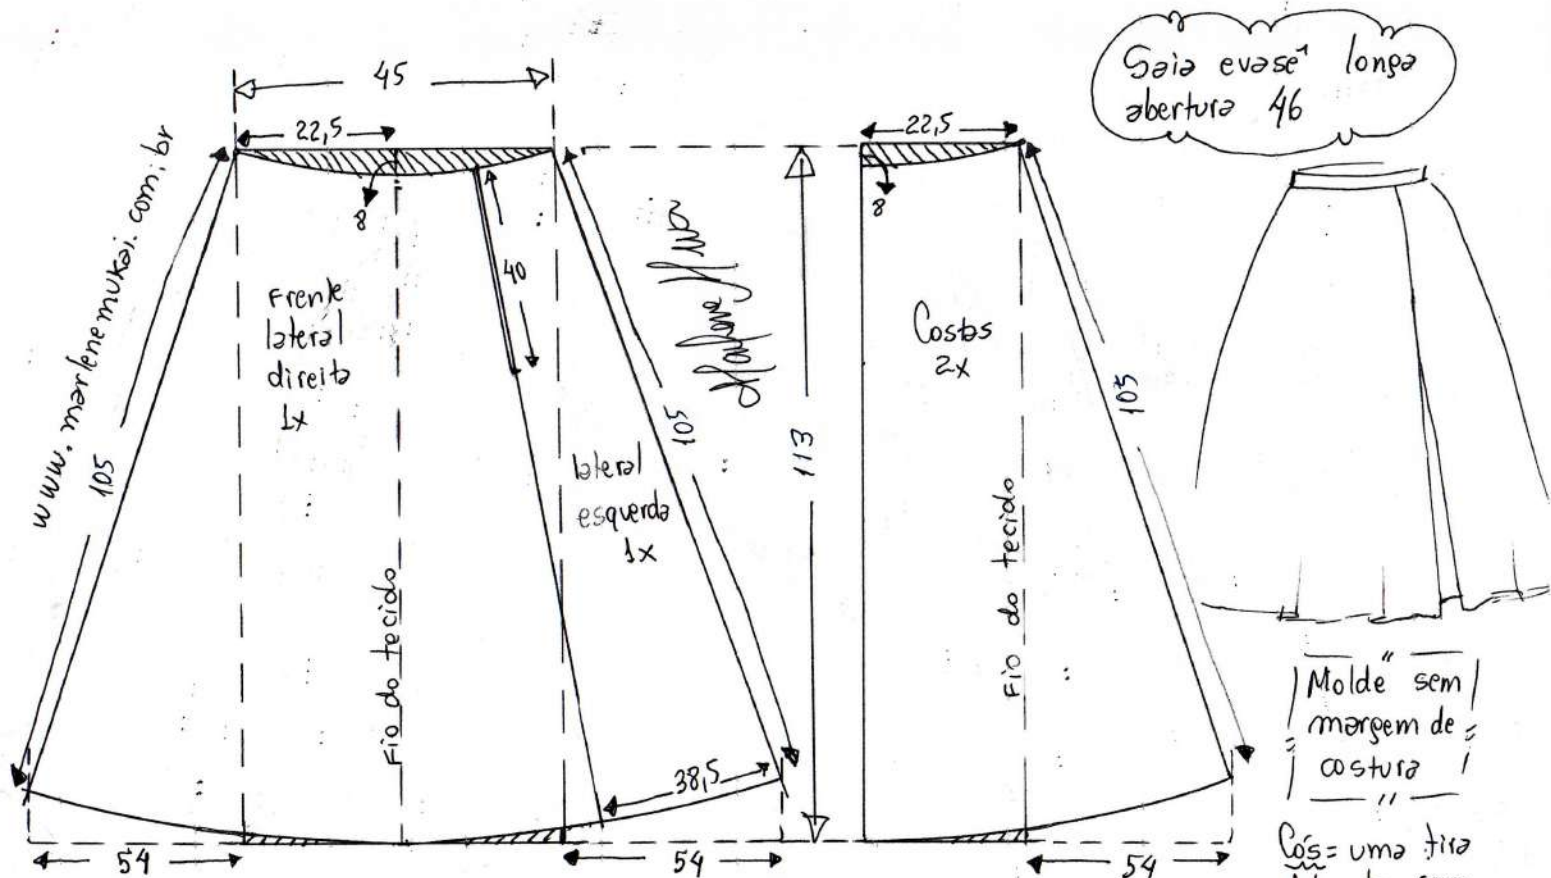 Saia evasê longa
abertura 46
45
22,5
8
www.marlenemukai.com.br
105
Frente
lateral
direita
1x
Fio do tecido
40
lateral
esquerda
1x
105
38,5
54
54
113
22,5
8
Costas
2x
Fio do tecido
105
54
Molde sem
margem de
costura
Cós = uma tira